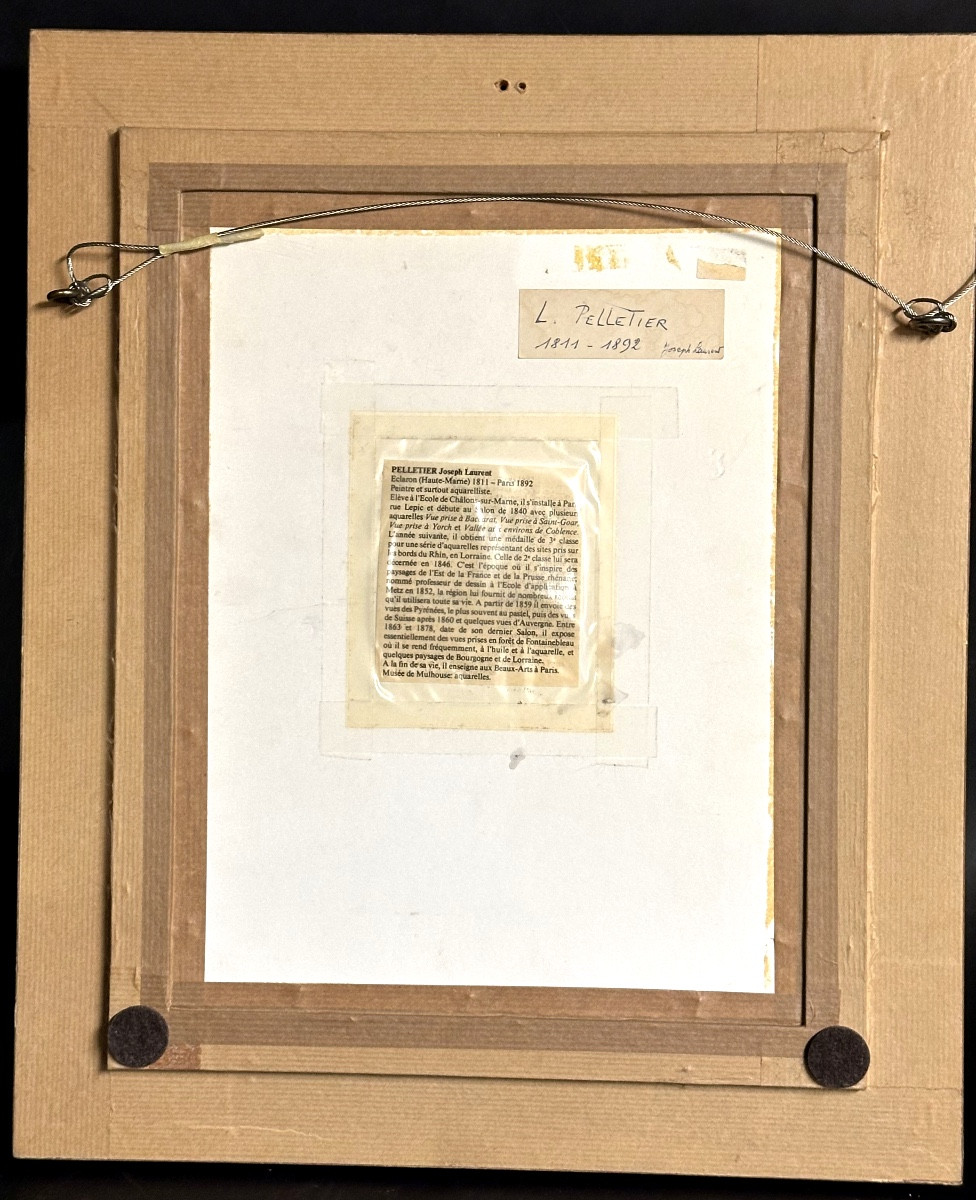 L. PELLETIER
1811 - 1892 Joseph Laurent
PELLETIER Joseph Laurent
Eclaron (Haute-Marne) 1811 – Paris 1892
Peintre et surtout aquarelliste.
Elève à l'Ecole de Châlons-sur-Marne, il s'installe à Par
rue Lepic et débute au Salon de 1840 avec plusieur
aquarelles Vue prise à Baccarat, Vue prise à Saint-Goar,
Vue prise à Yorch et Vallée aux environs de Coblence.
L'année suivante, il obtient une médaille de 3e classe
pour une série d'aquarelles représentant des sites pris sur
les bords du Rhin, en Lorraine. Celle de 2e classe lui sera
décernée en 1846. C'est l'époque où il s'inspire des
paysages de l'Est de la France et de la Prusse rhénane;
nommé professeur de dessin à l'Ecole d'application à
Metz en 1852, la région lui fournit de nombreux
qu'il utilisera toute sa vie. A partir de 1859 il envoie des
vues des Pyrénées, le plus souvent au pastel, puis des vues
de Suisse après 1860 et quelques vues d'Auvergne. Entre
1863 et 1878, date de son dernier Salon, il expose
essentiellement des vues prises en forêt de Fontainebleau
où il se rend fréquemment, à l'huile et à l'aquarelle, et
quelques paysages de Bourgogne et de Lorraine.
A la fin de sa vie, il enseigne aux Beaux-Arts à Paris.
Musée de Mulhouse: aquarelles.